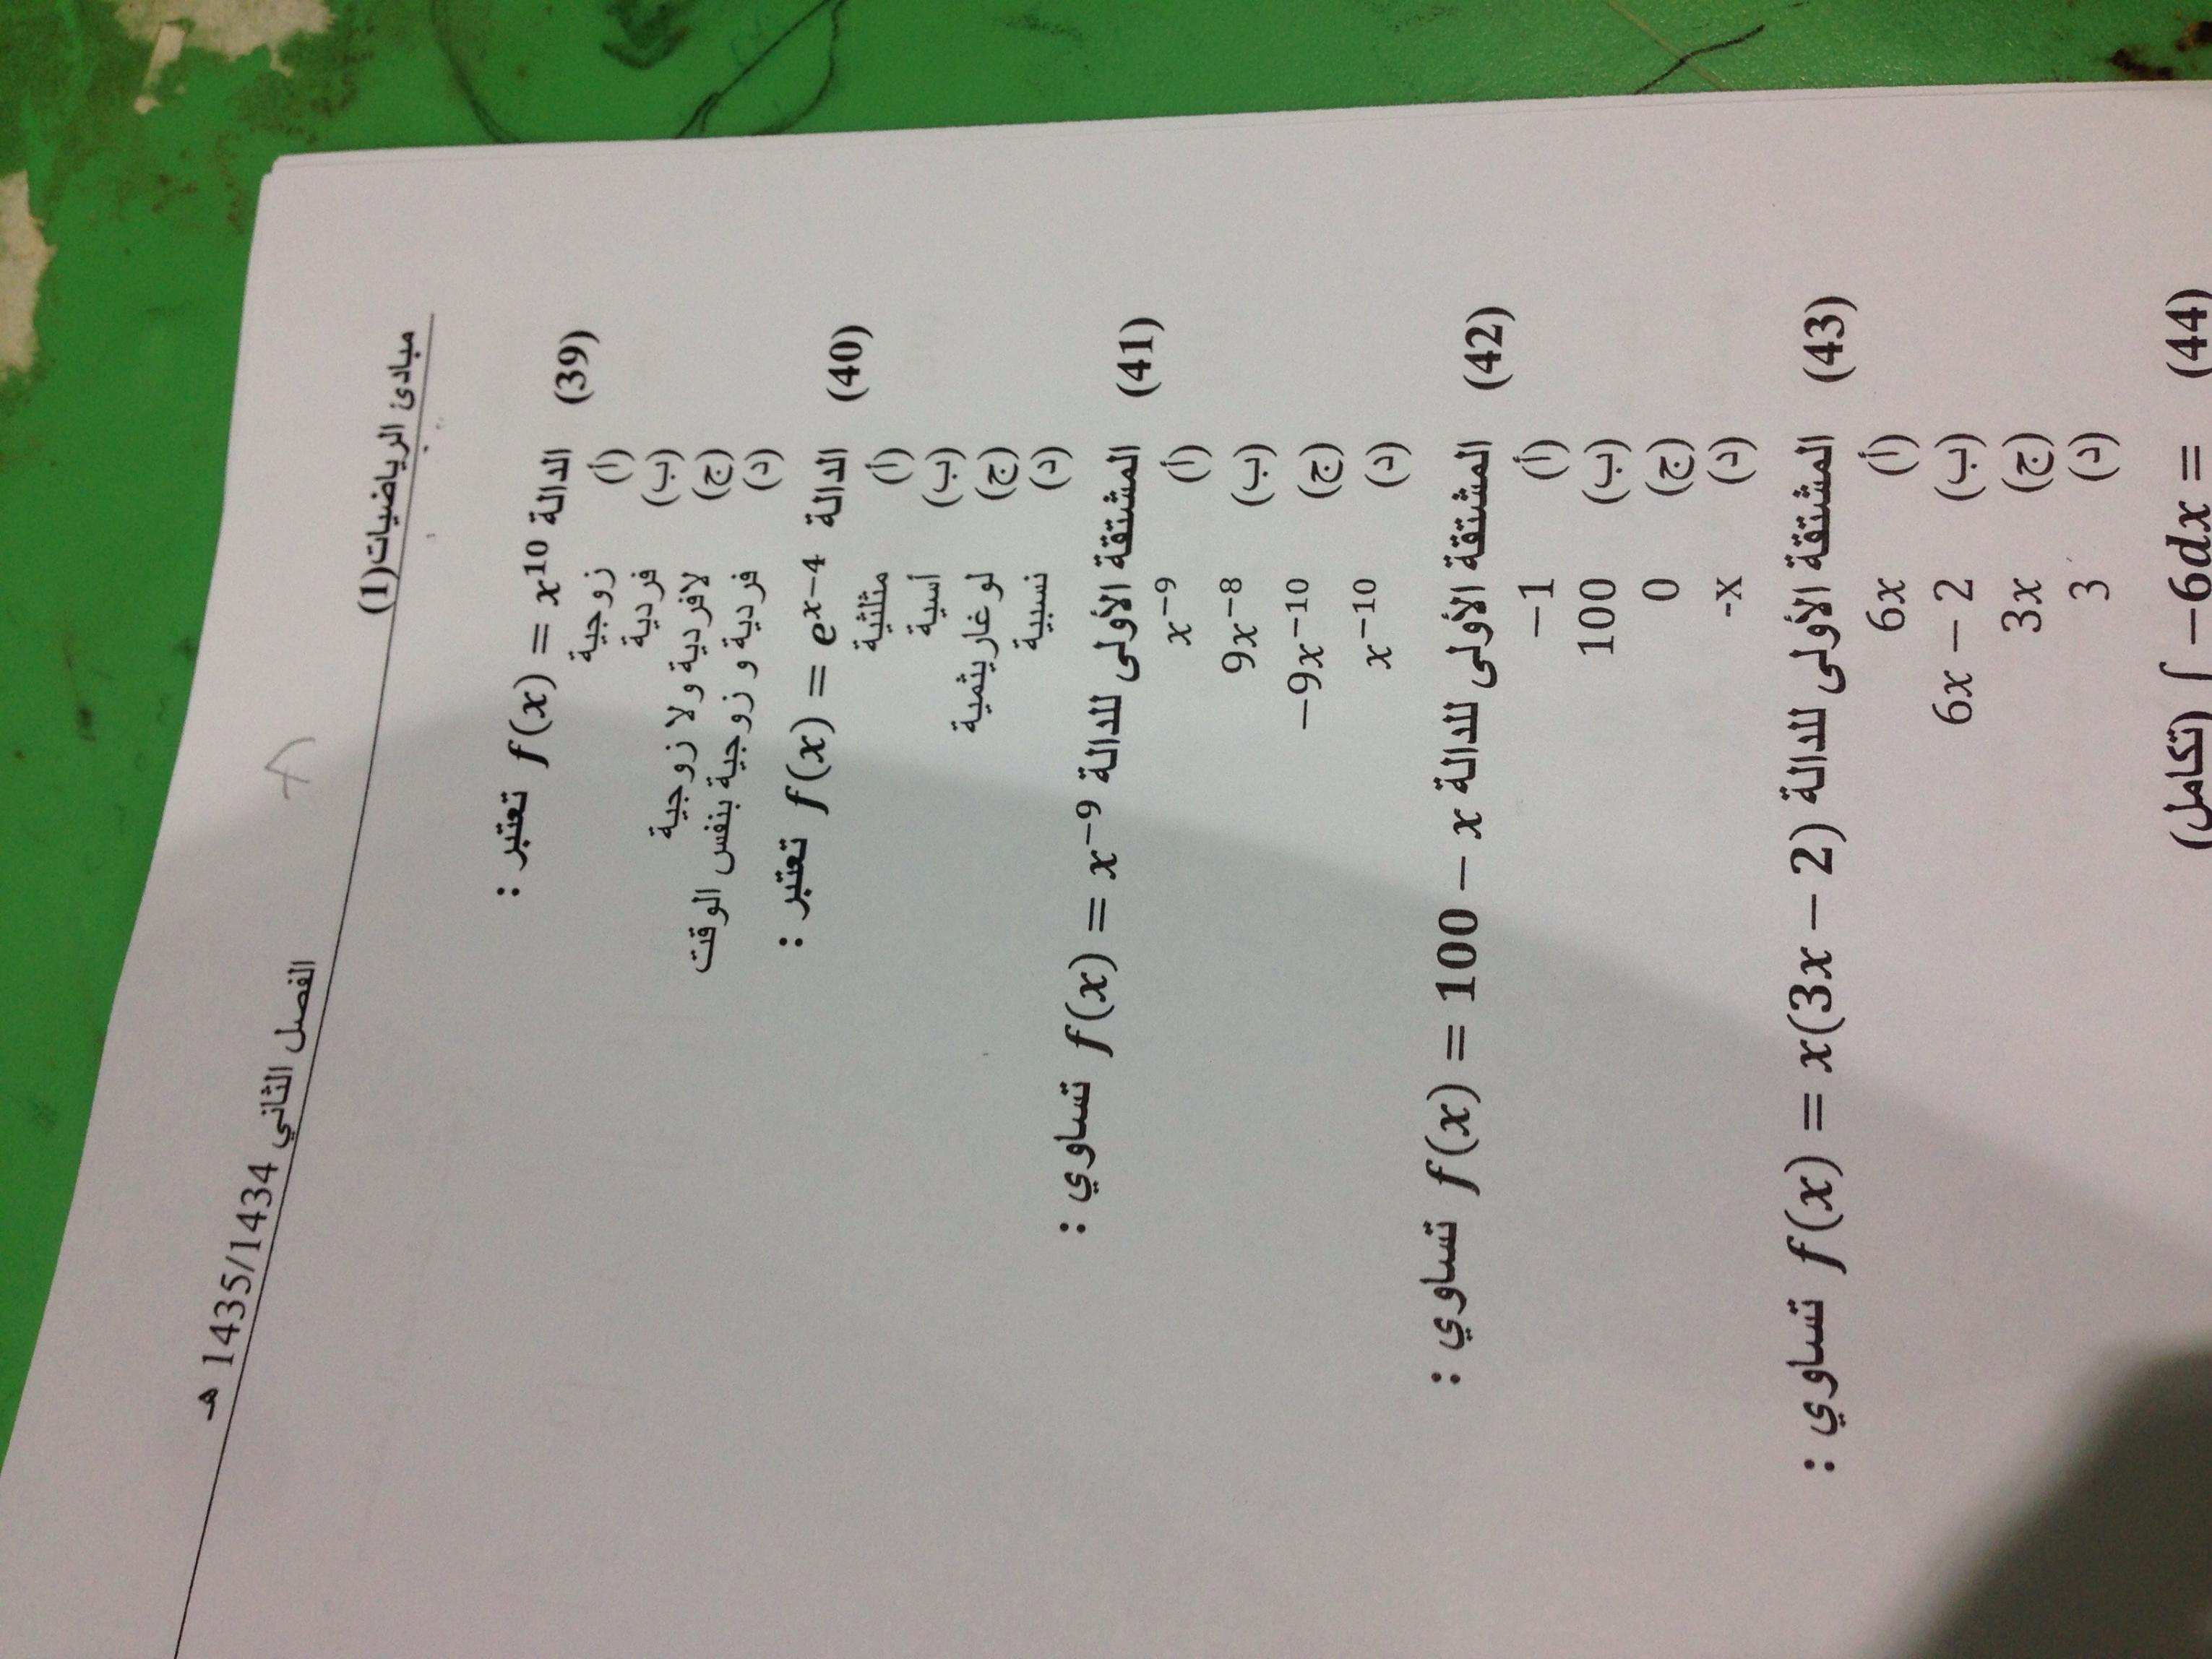 مبادئ الرياضيات(1) الفصل الثاني 1435/1434 هـ
(39) الدالة f(x) = x¹⁰ تعتبر :
(أ) زوجية
(ب) فردية
(ج) لافردية ولا زوجية
(د) فردية و زوجية بنفس الوقت
(40) الدالة f(x) = eˣ⁻⁴ تعتبر :
(أ) مثلثية
(ب) أسية
(ج) لوغاريثمية
(د) نسبية
(41) المشتقة الأولى للدالة f(x) = x⁻⁹ تساوي :
(أ) x⁻⁹
(ب) 9x⁻⁸
(ج) −9x⁻¹⁰
(د) x⁻¹⁰
(42) المشتقة الأولى للدالة f(x) = 100 − x تساوي :
(أ) −1
(ب) 100
(ج) 0
(د) -x
(43) المشتقة الأولى للدالة f(x) = x(3x − 2) تساوي :
(أ) 6x
(ب) 6x − 2
(ج) 3x
(د) 3
(44) ∫ −6dx = (تكامل)